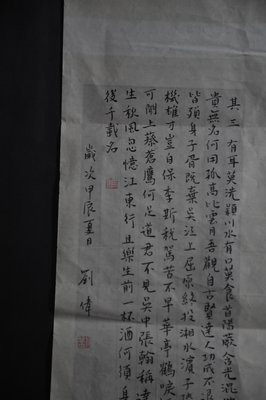 其三 有耳莫洗潁川水有口莫食首陽蕨含光混
貴無名何用孤高比雲月吾觀自古賢達人功成不退
皆殞身子胥既棄吳江上屈原終投湘水濱
機雄才豈自保李斯稅駕苦不早華亭鶴唳
可聞上蔡蒼鷹何足道君不見吳中張翰稱達
生秋風忽憶江東行且樂生前一杯酒何須身
後千載名
歲次甲辰夏月 劉偉